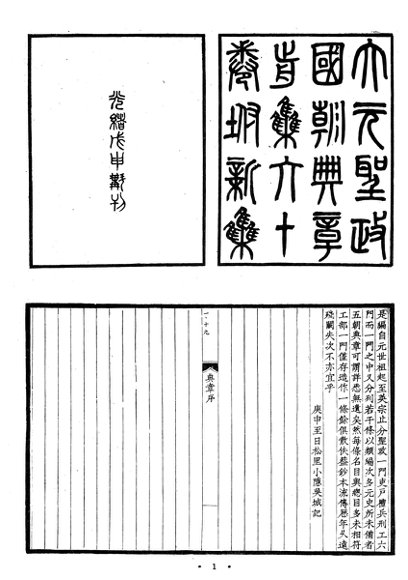 大元聖政
國朝典章
前集六十
卷坿新集
光緒戊申斠刊
是編自元世祖起至英宗止分聖政一門吏戶禮兵刑工六
門而一門之中又分列若干條以類編次多元史所未備者
五朝典章可謂詳悉無遺矣然每條名目與總目多未相符
工部一門僅存造作一條餘俱散佚蓋鈔本流傳歷年久遠
殘闕失次不亦宜乎
庚申至日松里小隱吳城記
典章序
一十九
• 1 •